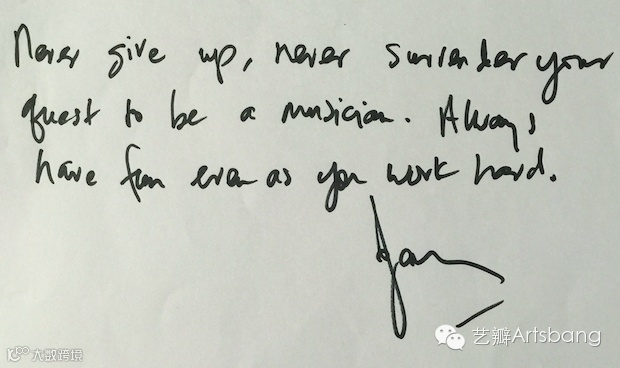 Never give up, never surrender your
quest to be a musician. Always
have fun even as you work hard.
艺瓣Artsbang
大数跨境